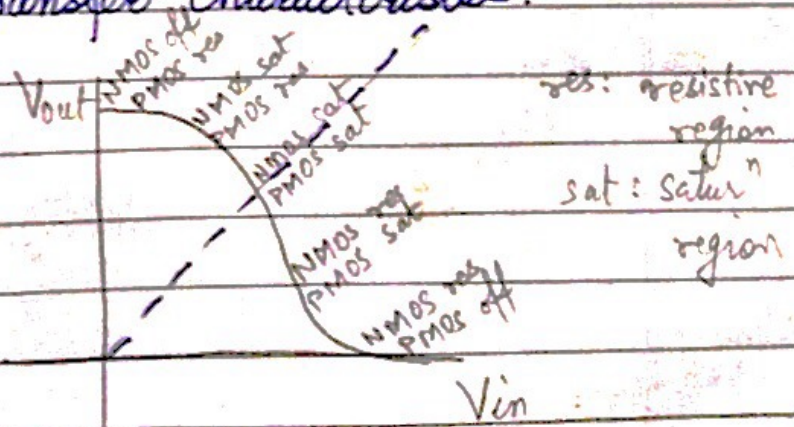 Transfer Characteristics:
Vout
NMOS off
PMOS res
NMOS sat
PMOS res
NMOS sat
PMOS sat
NMOS res
PMOS sat
NMOS res
PMOS off
res: resistive
region
sat: saturⁿ
region
Vin